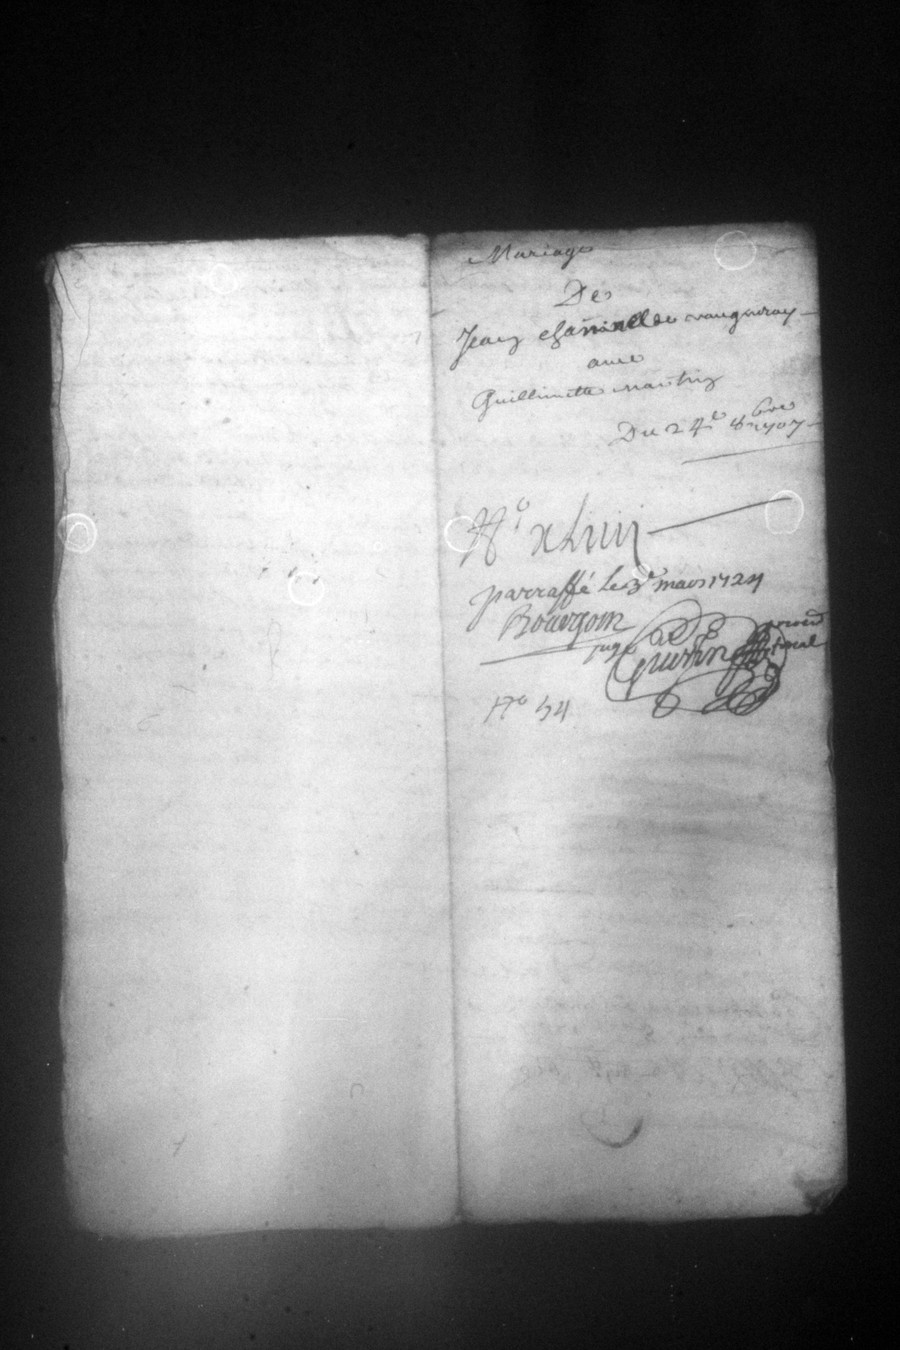 Mariage
De
Jean chaninel de vaugneray
avec
Guillimette martin
Du 24e 8bre 1707
No xLviij
parraffé le 3e mars 1724
Bourgoin
juge
No 54